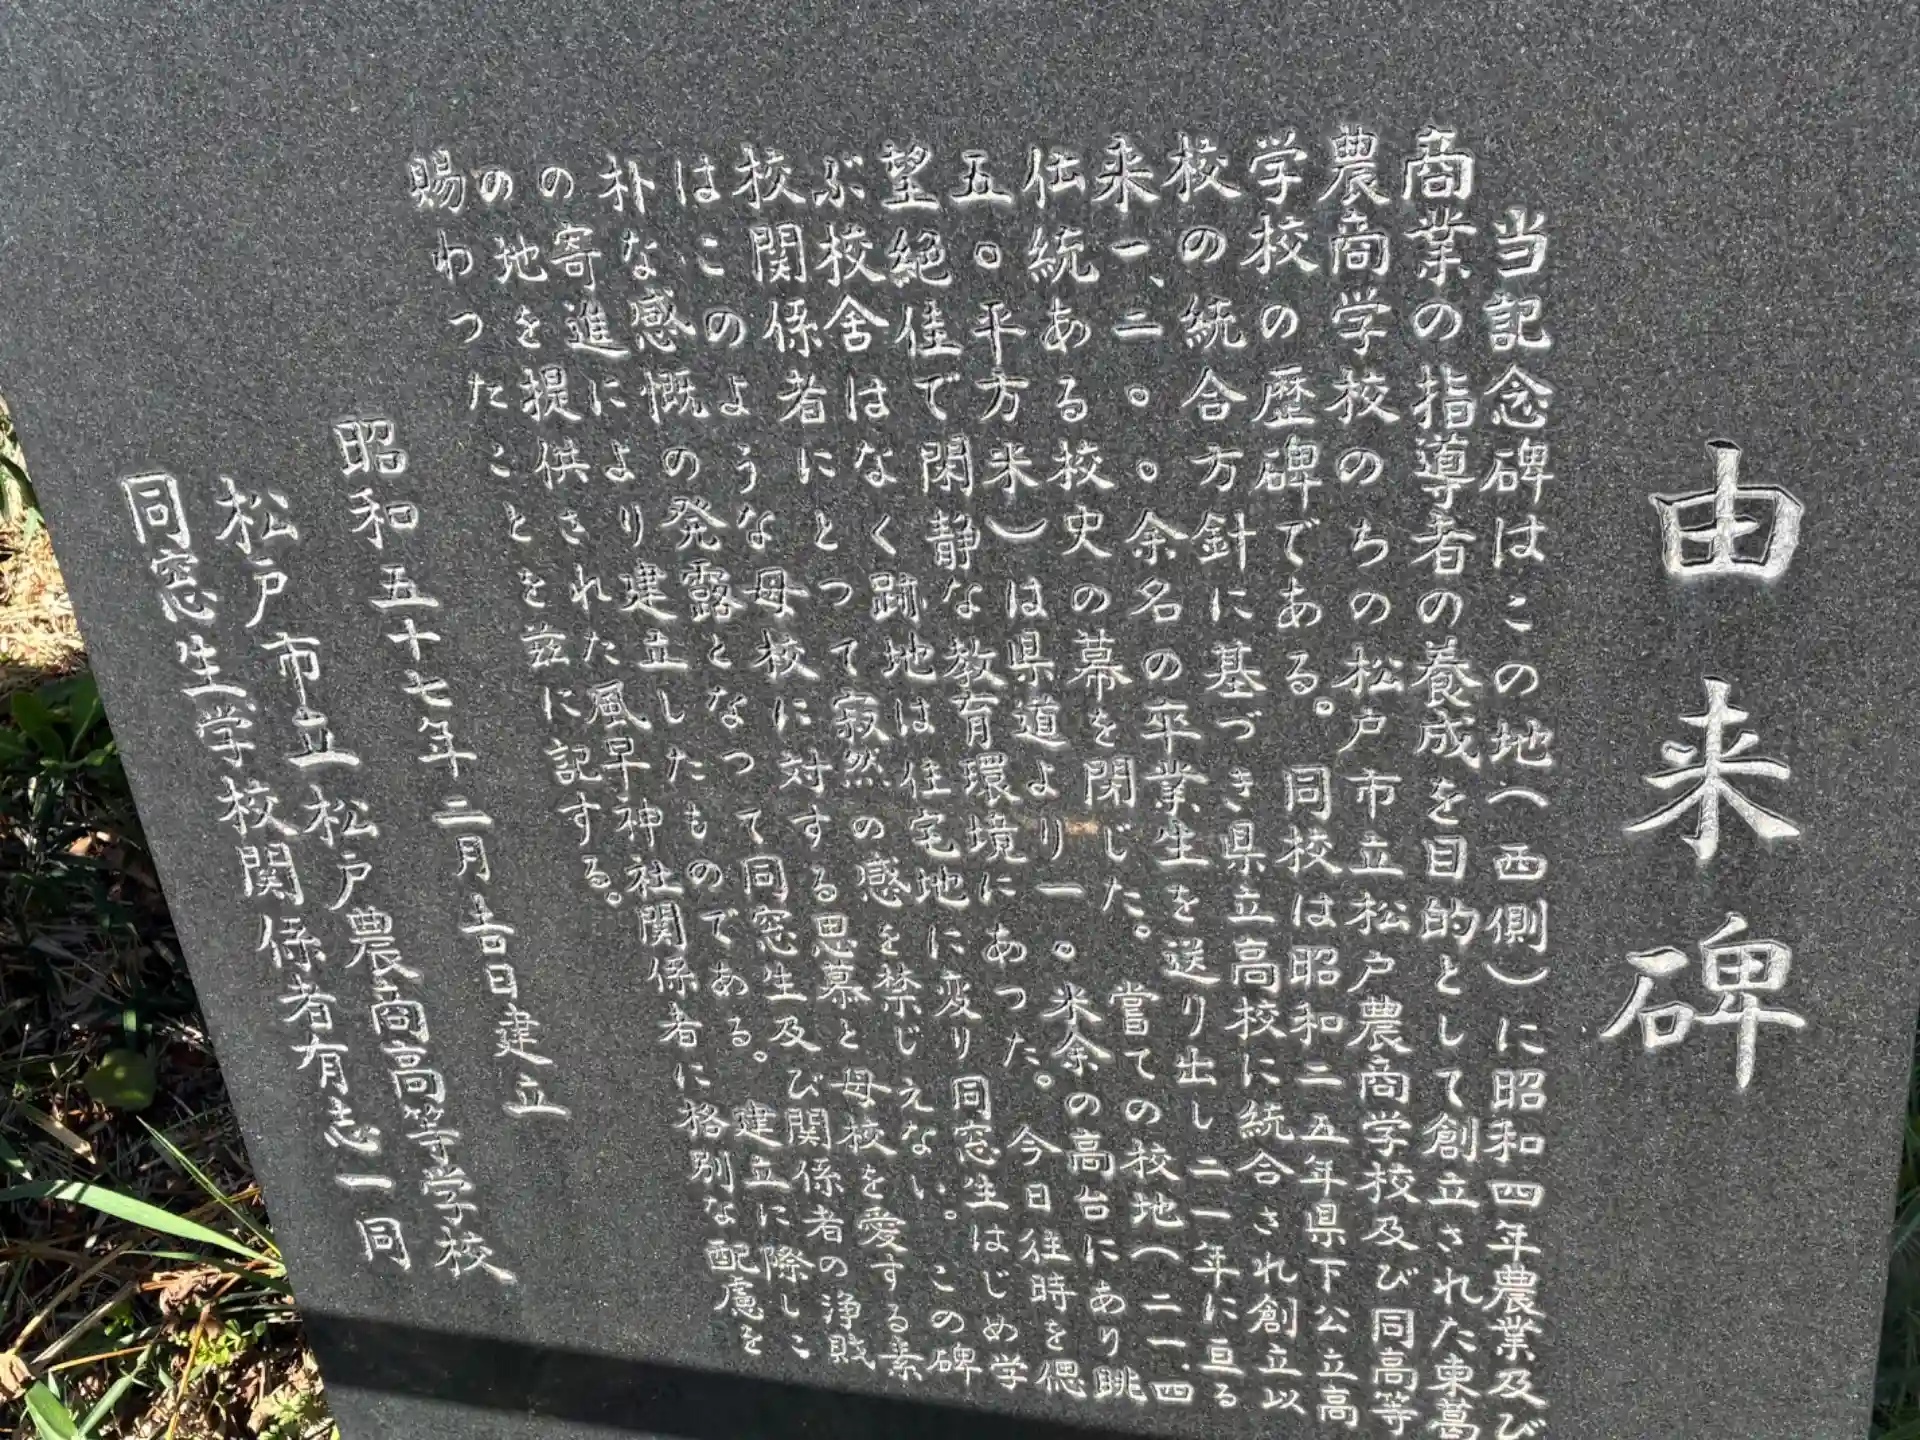 由来碑
当記念碑はこの地(西側)に昭和四年農業及び
商業の指導者の養成を目的として創立された東葛
農商学校のちの松戸市立松戸農商学校及び同高等
学校の歴碑である。同校は昭和二五年県下公立高
校の統合方針に基づき県立高校に統合され創立以
来一、二〇〇余名の卒業生を送り出し二一年に亘る
伝統ある校史の幕を閉じた。嘗ての校地(二一、四
五〇平方米)は県道より一〇米余の高台にあり眺
望絶佳で閑静な教育環境にあった。今日往時を偲
ぶ校舎はなく跡地は住宅地に変り同窓生はじめ学
校関係者にとって寂然の感を禁じえない。この碑
はこのような母校に対する思慕と母校を愛する素
朴な感慨の発露となつて同窓生及び関係者の浄財
の寄進により建立したものである。建立に際しこ
の地を提供された風早神社関係者に格別な配慮を
賜わったことを茲に記する。
昭和五十七年二月吉日建立
松戸市立松戸農商高等学校
同窓生学校関係者有志一同